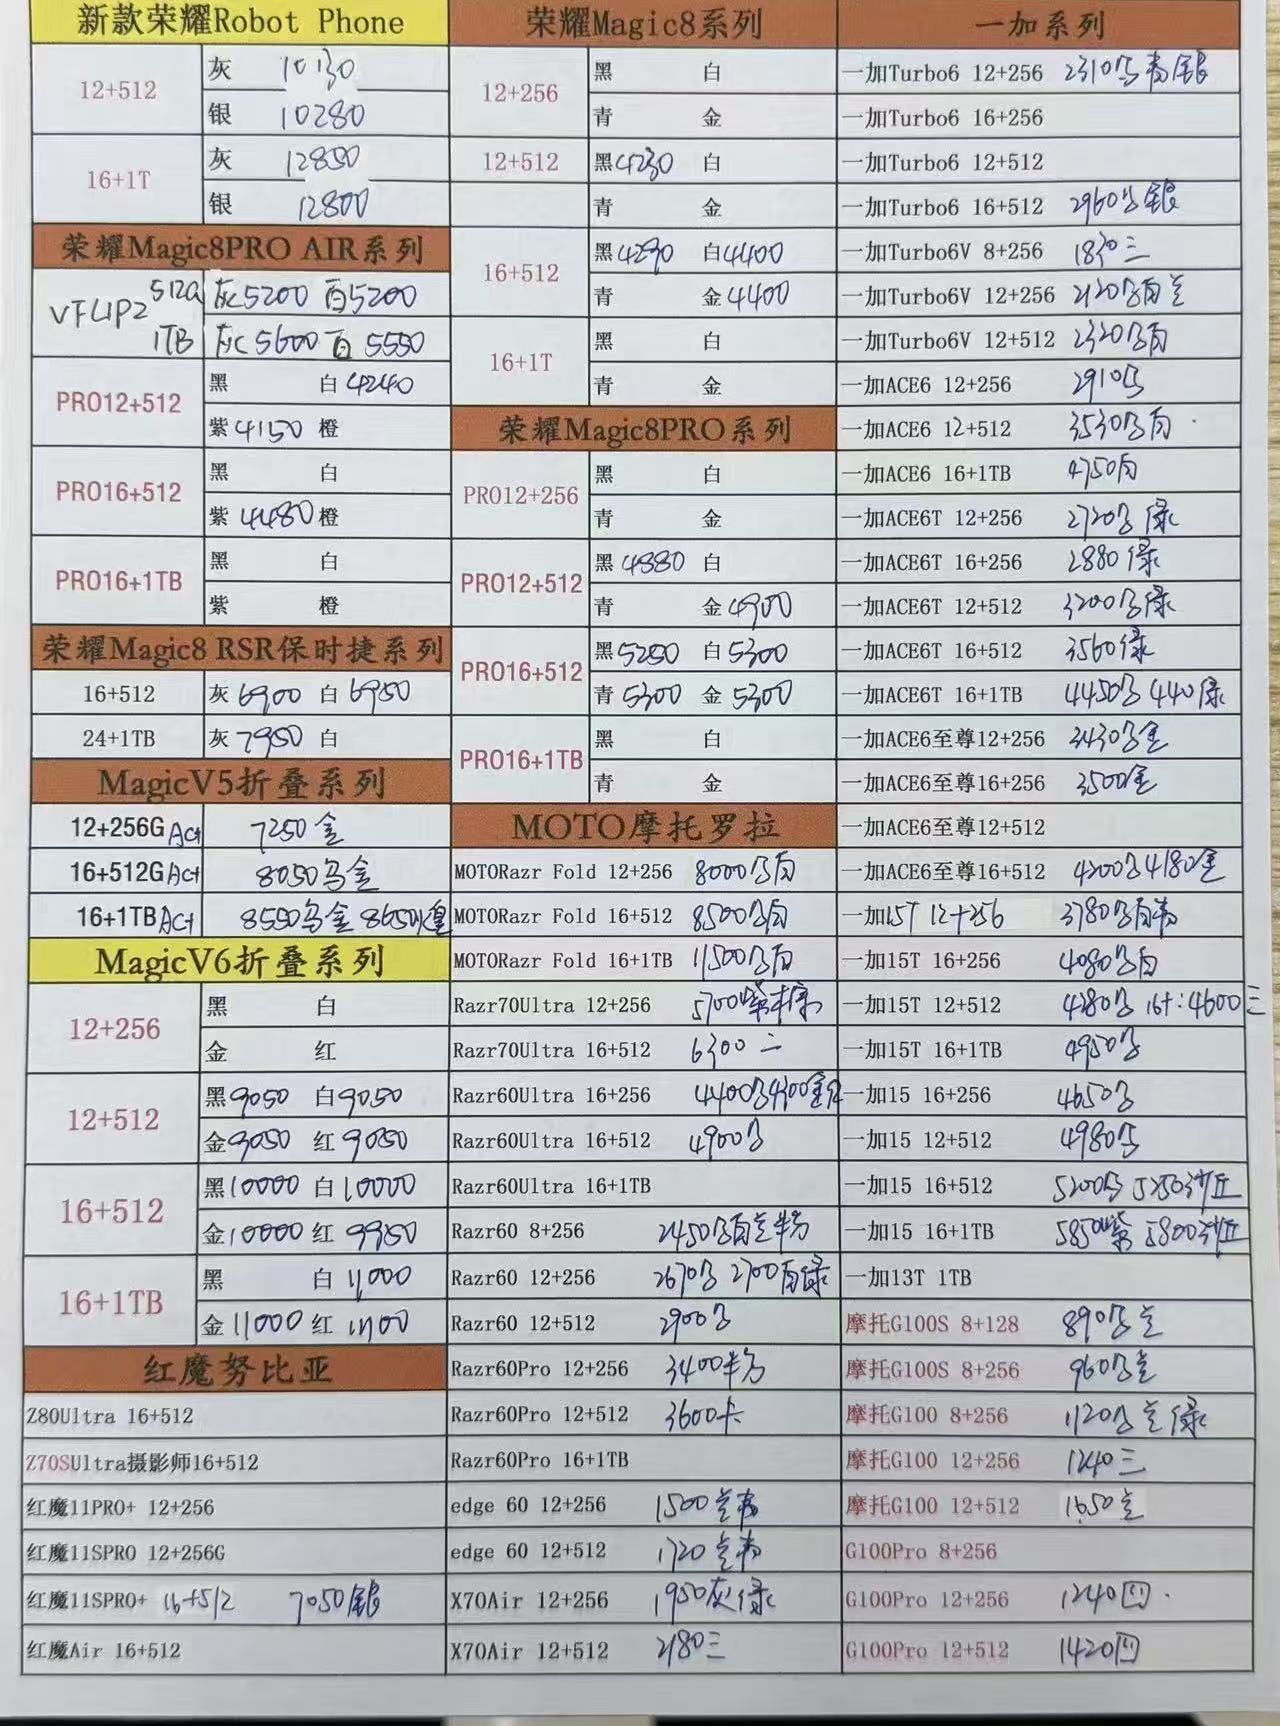 新款荣耀Robot Phone
12+512
灰 10130
银 10280
16+1T
灰 12850
银 12800
荣耀Magic8PRO AIR系列
VFLIP2 512G 灰5200 白5200
1TB 灰5600 白5550
PRO12+512
黑 白4240
紫4150 橙
PRO16+512
黑 白
紫4480橙
PRO16+1TB
黑 白
紫 橙
荣耀Magic8 RSR保时捷系列
16+512 灰6900 白6950
24+1TB 灰7950 白
MagicV5折叠系列
12+256G Act 7250金
16+512G Act 8050乌金
16+1TB Act 8550乌金 8650
MagicV6折叠系列
12+256
黑 白
金 红
12+512
黑9050 白9050
金9050 红9050
16+512
黑10000 白10000
金10000 红9950
16+1TB
黑 白11000
金11000 红
红魔努比亚
Z80Ultra 16+512
Z70SUltra摄影师16+512
红魔11PRO+ 12+256
红魔11SPRO 12+256G
红魔11SPRO+ 16+512 7050银
红魔Air 16+512
荣耀Magic8系列
12+256
黑 白
青 金
12+512
黑4230 白
青 金
16+512
黑4290 白4400
青 金4400
16+1T
黑 白
青 金
荣耀Magic8PRO系列
PRO12+256
黑 白
青 金
PRO12+512
黑4880 白
青 金4900
PRO16+512
黑5250 白5300
青5300 金5300
PRO16+1TB
黑 白
青 金
MOTO摩托罗拉
MOTORazr Fold 12+256 8000白
MOTORazr Fold 16+512 8500白
MOTORazr Fold 16+1TB 11500白
Razr70Ultra 12+256 5700紫
Razr70Ultra 16+512 6300二
Razr60Ultra 16+256 4400
Razr60Ultra 16+512 4900
Razr60Ultra 16+1TB
Razr60 8+256 2450
Razr60 12+256 2670 2700白绿
Razr60 12+512 2900
Razr60Pro 12+256 3400
Razr60Pro 12+512 3600卡
Razr60Pro 16+1TB
edge 60 12+256 1500
edge 60 12+512 1720
X70Air 12+256 1950灰绿
X70Air 12+512 2180三
一加系列
一加Turbo6 12+256 2310
一加Turbo6 16+256
一加Turbo6 12+512
一加Turbo6 16+512 2960银
一加Turbo6V 8+256 1830三
一加Turbo6V 12+256 2120
一加Turbo6V 12+512 2320白
一加ACE6 12+256 2910
一加ACE6 12+512 3530白
一加ACE6 16+1TB 4750白
一加ACE6T 12+256 2720绿
一加ACE6T 16+256 2880绿
一加ACE6T 12+512 3200绿
一加ACE6T 16+512 3560绿
一加ACE6T 16+1TB 4450 440绿
一加ACE6至尊12+256 3430金
一加ACE6至尊16+256 3500金
一加ACE6至尊12+512
一加ACE6至尊16+512 4200 4180金
一加15T 12+256 3780
一加15T 16+256 4080白
一加15T 12+512 4280 16+:4600三
一加15T 16+1TB 4950
一加15 16+256 4650
一加15 12+512 4980
一加15 16+512 5200 5250沙丘
一加15 16+1TB 5850紫 5800沙丘
一加13T 1TB
摩托G100S 8+128 890
摩托G100S 8+256 960
摩托G100 8+256 1120绿
摩托G100 12+256 1240三
摩托G100 12+512 1650
G100Pro 8+256
G100Pro 12+256 1240四
G100Pro 12+512 1420四